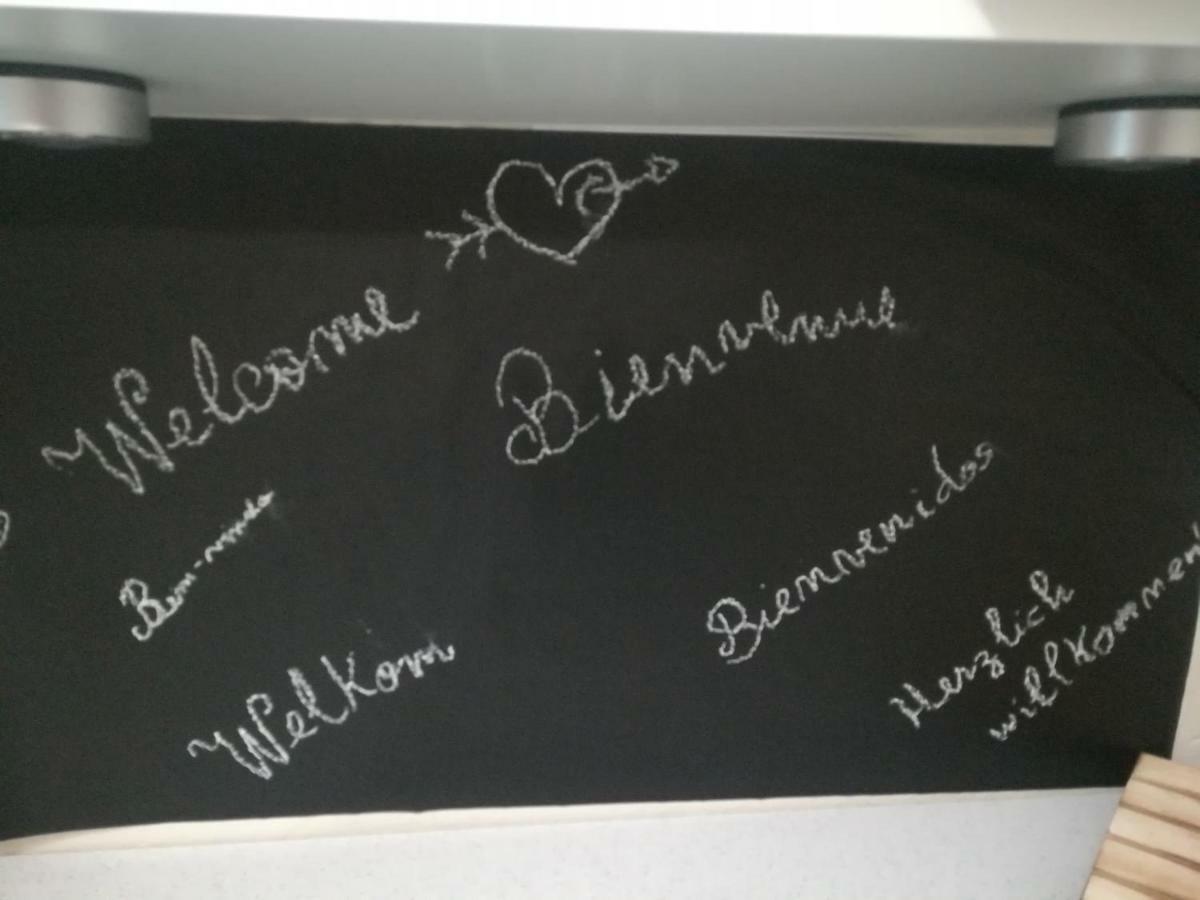 Welcome
Bienvenue
Bem-vindo
Bienvenidos
Welkom
Herzlich
willkommen